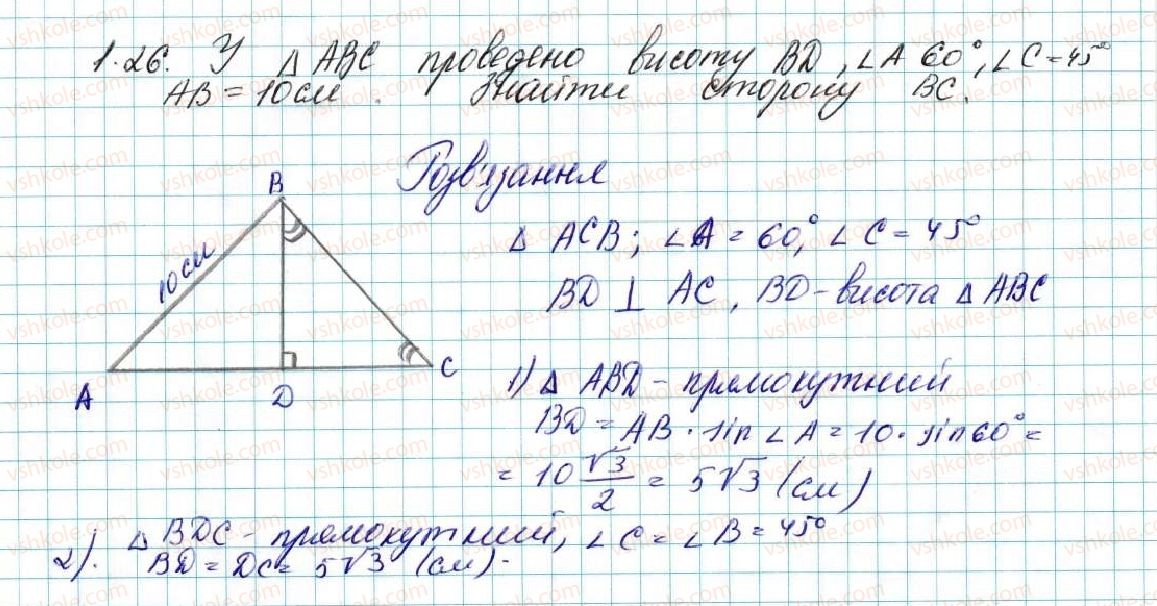 1.26. У △ ABC проведено висоту BD, ∠A 60°, ∠C = 45°
AB = 10 см. Знайти сторону BC.
Розв'язання
B
10 см
A
D
C
△ ACB; ∠A = 60°, ∠C = 45°
BD ⊥ AC, BD - висота △ ABC
1) △ ABD - прямокутний
BD = AB · sin ∠A = 10 · sin 60° =
= 10 √3/2 = 5√3 (см)
2). △ BDC - прямокутний, ∠C = ∠B = 45°
BD = DC = 5√3 (см).